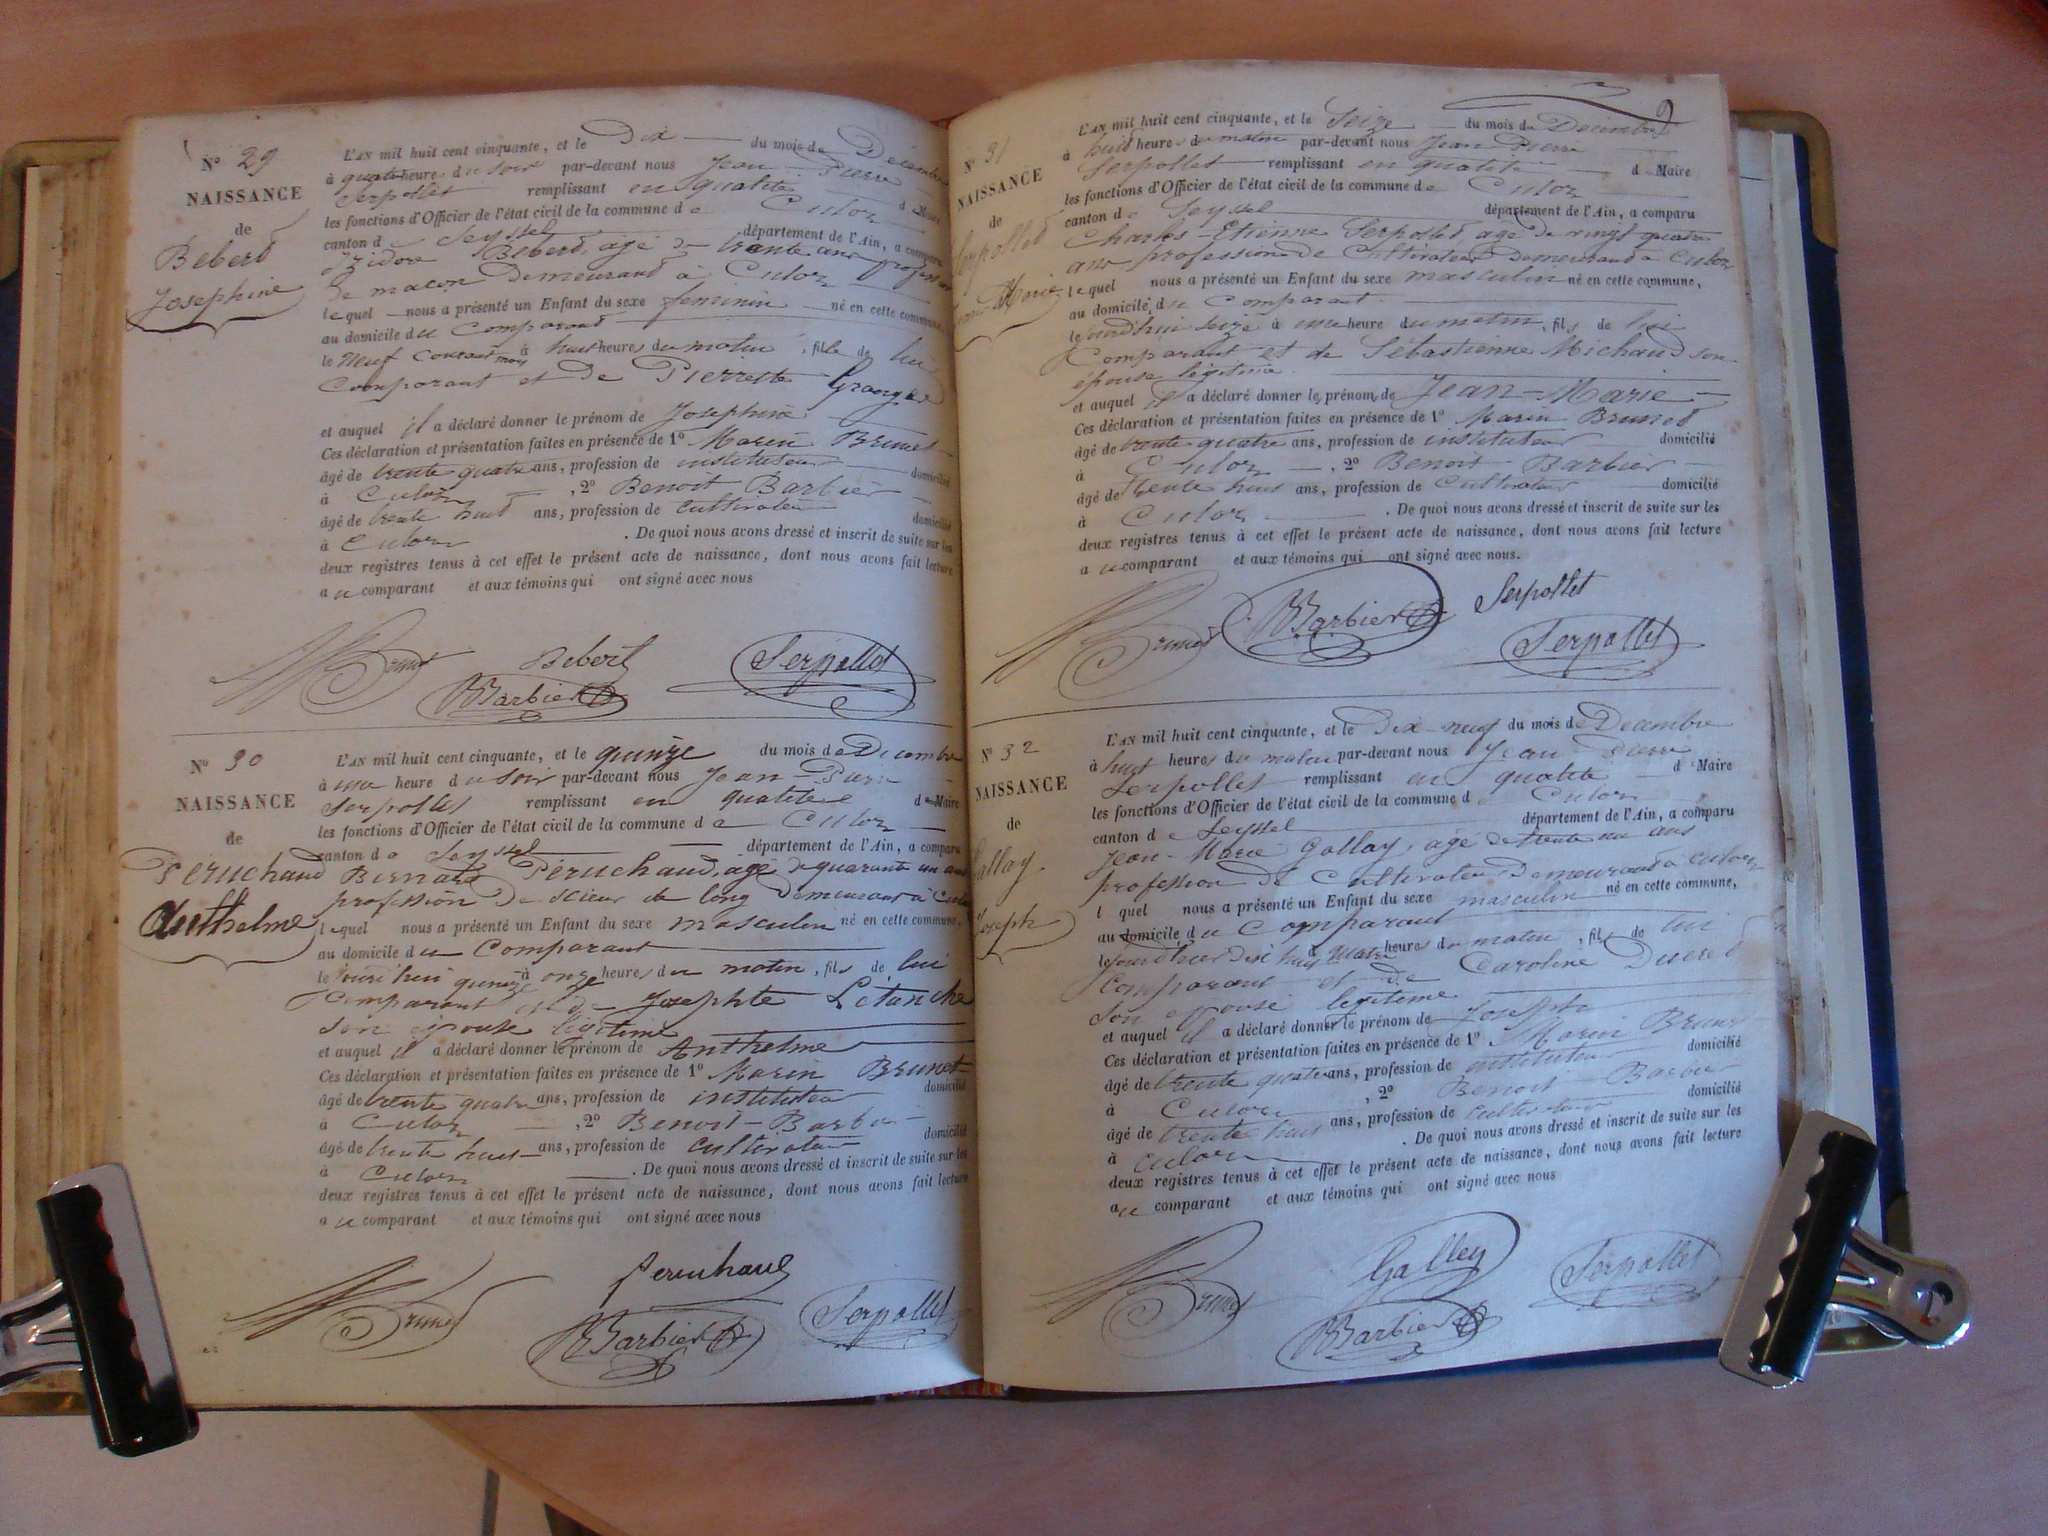 N° 29
NAISSANCE
de
Bebert
Josephine
L'AN mil huit cent cinquante, et le Dix du mois de Décembre
à quatre heures du soir par-devant nous Jean Pierre
Serpollet remplissant en qualité de Maire
les fonctions d'Officier de l'état civil de la commune de Culoz
canton de Seyssel département de l'Ain, a comparu
Izidore Bebert, âgé de trente ans profession
de maçon demeurant à Culoz
lequel nous a présenté un Enfant du sexe feminin né en cette commune,
au domicile du Comparant
le Neuf Courant mois à huit heures du matin, fille de lui
Comparant et de Pierrette Granger
et auquel il a déclaré donner le prénom de Josephine
Ces déclaration et présentation faites en présence de 1° Marin Brunet
âgé de trente quatre ans, profession de instituteur domicilié
à Culoz, 2° Benoit Barbier
âgé de trente huit ans, profession de Cultivateur domicilié
à Culoz. De quoi nous avons dressé et inscrit de suite sur les
deux registres tenus à cet effet le présent acte de naissance, dont nous avons fait lecture
au comparant et aux témoins qui ont signé avec nous
Brunet Bebert Serpollet
BBarbier
N° 30
NAISSANCE
de
Péruchaud
Anthelme
L'AN mil huit cent cinquante, et le quinze du mois de Décembre
à une heure du soir par-devant nous Jean-Pierre
Serpollet remplissant en qualité de Maire
les fonctions d'Officier de l'état civil de la commune de Culoz
canton de Seyssel département de l'Ain, a comparu
Bernard Péruchaud, âgé de quarante un ans
profession de scieur de long demeurant à Culoz
lequel nous a présenté un Enfant du sexe masculin né en cette commune,
au domicile du Comparant
le jourd'hui quinze à onze heures du matin, fils de lui
Comparant et de Josephte Létanche
son épouse légitime
et auquel il a déclaré donner le prénom de Anthelme
Ces déclaration et présentation faites en présence de 1° Marin Brunet
âgé de trente quatre ans, profession de instituteur domicilié
à Culoz, 2° Benoit-Barbier
âgé de trente huit ans, profession de cultivateur domicilié
à Culoz. De quoi nous avons dressé et inscrit de suite sur les
deux registres tenus à cet effet le présent acte de naissance, dont nous avons fait lecture
au comparant et aux témoins qui ont signé avec nous
Brunet Peruchaud
BBarbier Serpollet
9
N° 31
NAISSANCE
de
Serpollet
Marie
L'AN mil huit cent cinquante, et le Seize du mois de Décembre
à huit heures du matin par-devant nous Jean Pierre
Serpollet remplissant en qualité de Maire
les fonctions d'Officier de l'état civil de la commune de Culoz
canton de Seyssel département de l'Ain, a comparu
Charles-Etienne Serpollet, âgé de vingt quatre
ans, profession de Cultivateur Demeurant à Culoz
lequel nous a présenté un Enfant du sexe masculin né en cette commune,
au domicile du Comparant
le jourd'hui seize à une heure du matin, fils de lui
Comparant et de Sébastienne Michaud son
épouse légitime
et auquel il a déclaré donner le prénom de Jean-Marie
Ces déclaration et présentation faites en présence de 1° Marin Brunet
âgé de trente-quatre ans, profession de instituteur domicilié
à Culoz, 2° Benoit Barbier
âgé de trente huit ans, profession de Cultivateur domicilié
à Culoz. De quoi nous avons dressé et inscrit de suite sur les
deux registres tenus à cet effet le présent acte de naissance, dont nous avons fait lecture
au comparant et aux témoins qui ont signé avec nous.
Brunet BBarbier Serpollet
Serpollet
N° 32
NAISSANCE
de
Gallay
Joseph
L'AN mil huit cent cinquante, et le Dix-neuf du mois de Décembre
à huit heures du matin par-devant nous Jean Pierre
Serpollet remplissant en qualité d Maire
les fonctions d'Officier de l'état civil de la commune d Culoz
canton de Seyssel département de l'Ain, a comparu
Jean-Marie Gallay, âgé de trente un ans
profession de Cultivateur Demeurant à Culoz
l quel nous a présenté un Enfant du sexe masculin né en cette commune,
au domicile du Comparant
le jourd'hier dix huit à quatre heures du matin, fils de lui
Comparant et de Caroline
son épouse légitime
et auquel il a déclaré donner le prénom de Joseph
Ces déclaration et présentation faites en présence de 1° Marin Brunet
âgé de trente quatre ans, profession de instituteur domicilié
à Culoz, 2° Benoit Barbier
âgé de trente huit ans, profession de cultivateur domicilié
à Culoz. De quoi nous avons dressé et inscrit de suite sur les
deux registres tenus à cet effet le présent acte de naissance, dont nous avons fait lecture
au comparant et aux témoins qui ont signé avec nous
Brunet Galley Serpollet
BBarbier